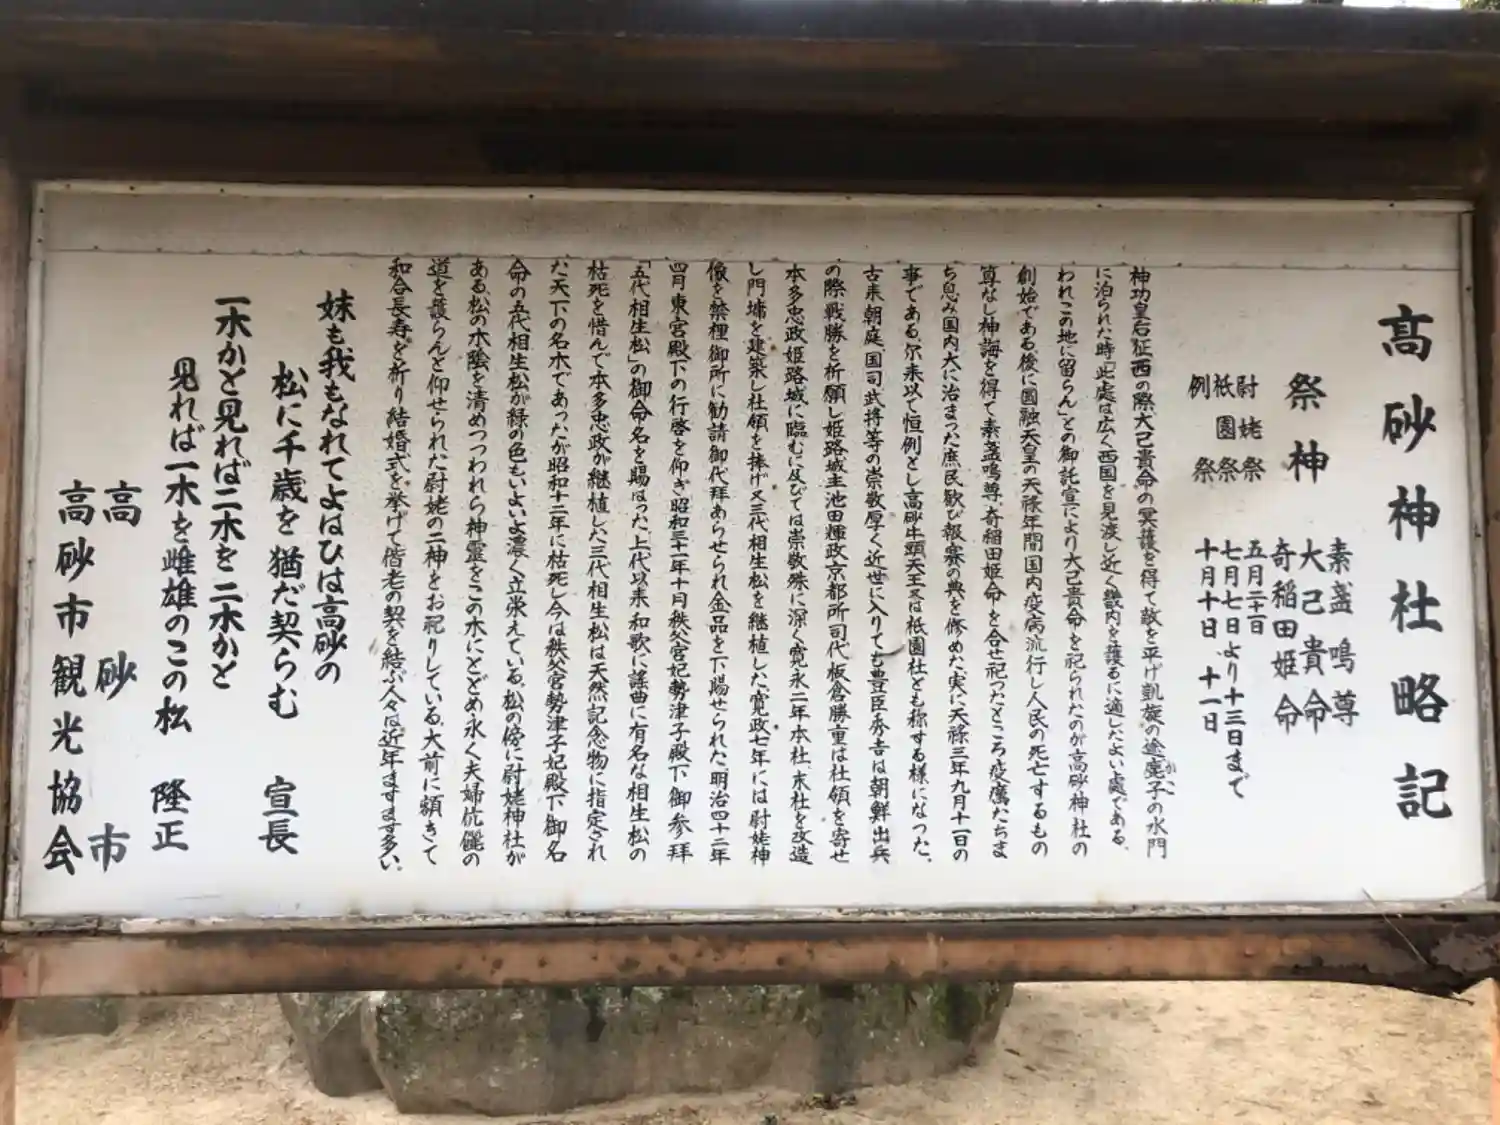 高砂神社略記
祭神
素盞嗚尊
大己貴命
奇稲田姫命
尉姥祭 五月二十一日
祇園祭 七月七日より十三日まで
例祭 十月十日、十一日
神功皇后征西の際大己貴命の冥護を得て敵を平げ凱旋の途鹿子の水門
に泊られた時「此處は広く西国を見渡し近く畿内を護るに適したよい處である。
われこの地に留らん」との御託宣により大己貴命を祀られたのが高砂神社の
創始である。後に圓融天皇の天禄年間国内疫病流行し人民の死亡するもの
算なし神誨を得て素盞嗚尊、奇稲田姫命を合せ祀ったところ疫癘たちま
ち息み国内大に治まった庶民歓び報賽の典を修めた。実に天禄三年九月十一日の
事である。尓来以て恒例とし高砂牛頭天王又は祇園社とも称する様になった。
古来朝庭、国司武将等の崇敬厚く近世に入りても豊臣秀吉は朝鮮出兵
の際戦勝を祈願し姫路城主池田輝政京都所司代板倉勝重は社領を寄せ
本多忠政姫路城に臨むに及びては崇敬殊に深く寛永二年本社、末社を改造
し門塀を建築し社領を捧げ又三代相生松を継植した。寛政七年には尉姥神
像を禁裡御所に勧請御代拜あらせられ金品を下賜せられた。明治四十二年
四月東宮殿下の行啓を仰ぎ昭和三十一年十月秩父宮妃勢津子殿下御参拜
「五代相生松」の御命名を賜はった。上代以来和歌に謡曲に有名な相生松の
枯死を惜んで本多忠政が継植した三代相生松は天然記念物に指定され
た天下の名木であったが昭和十二年に枯死し今は秩父宮勢津子妃殿下御名
命の五代相生松が緑の色もいよいよ濃く立栄えている。松の傍に尉姥神社が
ある、松の木陰を清めつつわれら神霊をこの木にとどめ永く夫婦伉儷の
道を護らんと仰せられた尉姥の二神をお祀りしている。大前に額きて
和合長寿を祈り結婚式を挙げて偕老の契を結ぶ人々は近年ますます多い。
妹も我もなれてよはひは高砂の
松に千歳を猶だ契らむ 宣長
一木かと見れば二木を二木かと
見れば一木を雌雄のこの松 隆正
高砂市
高砂市観光協会